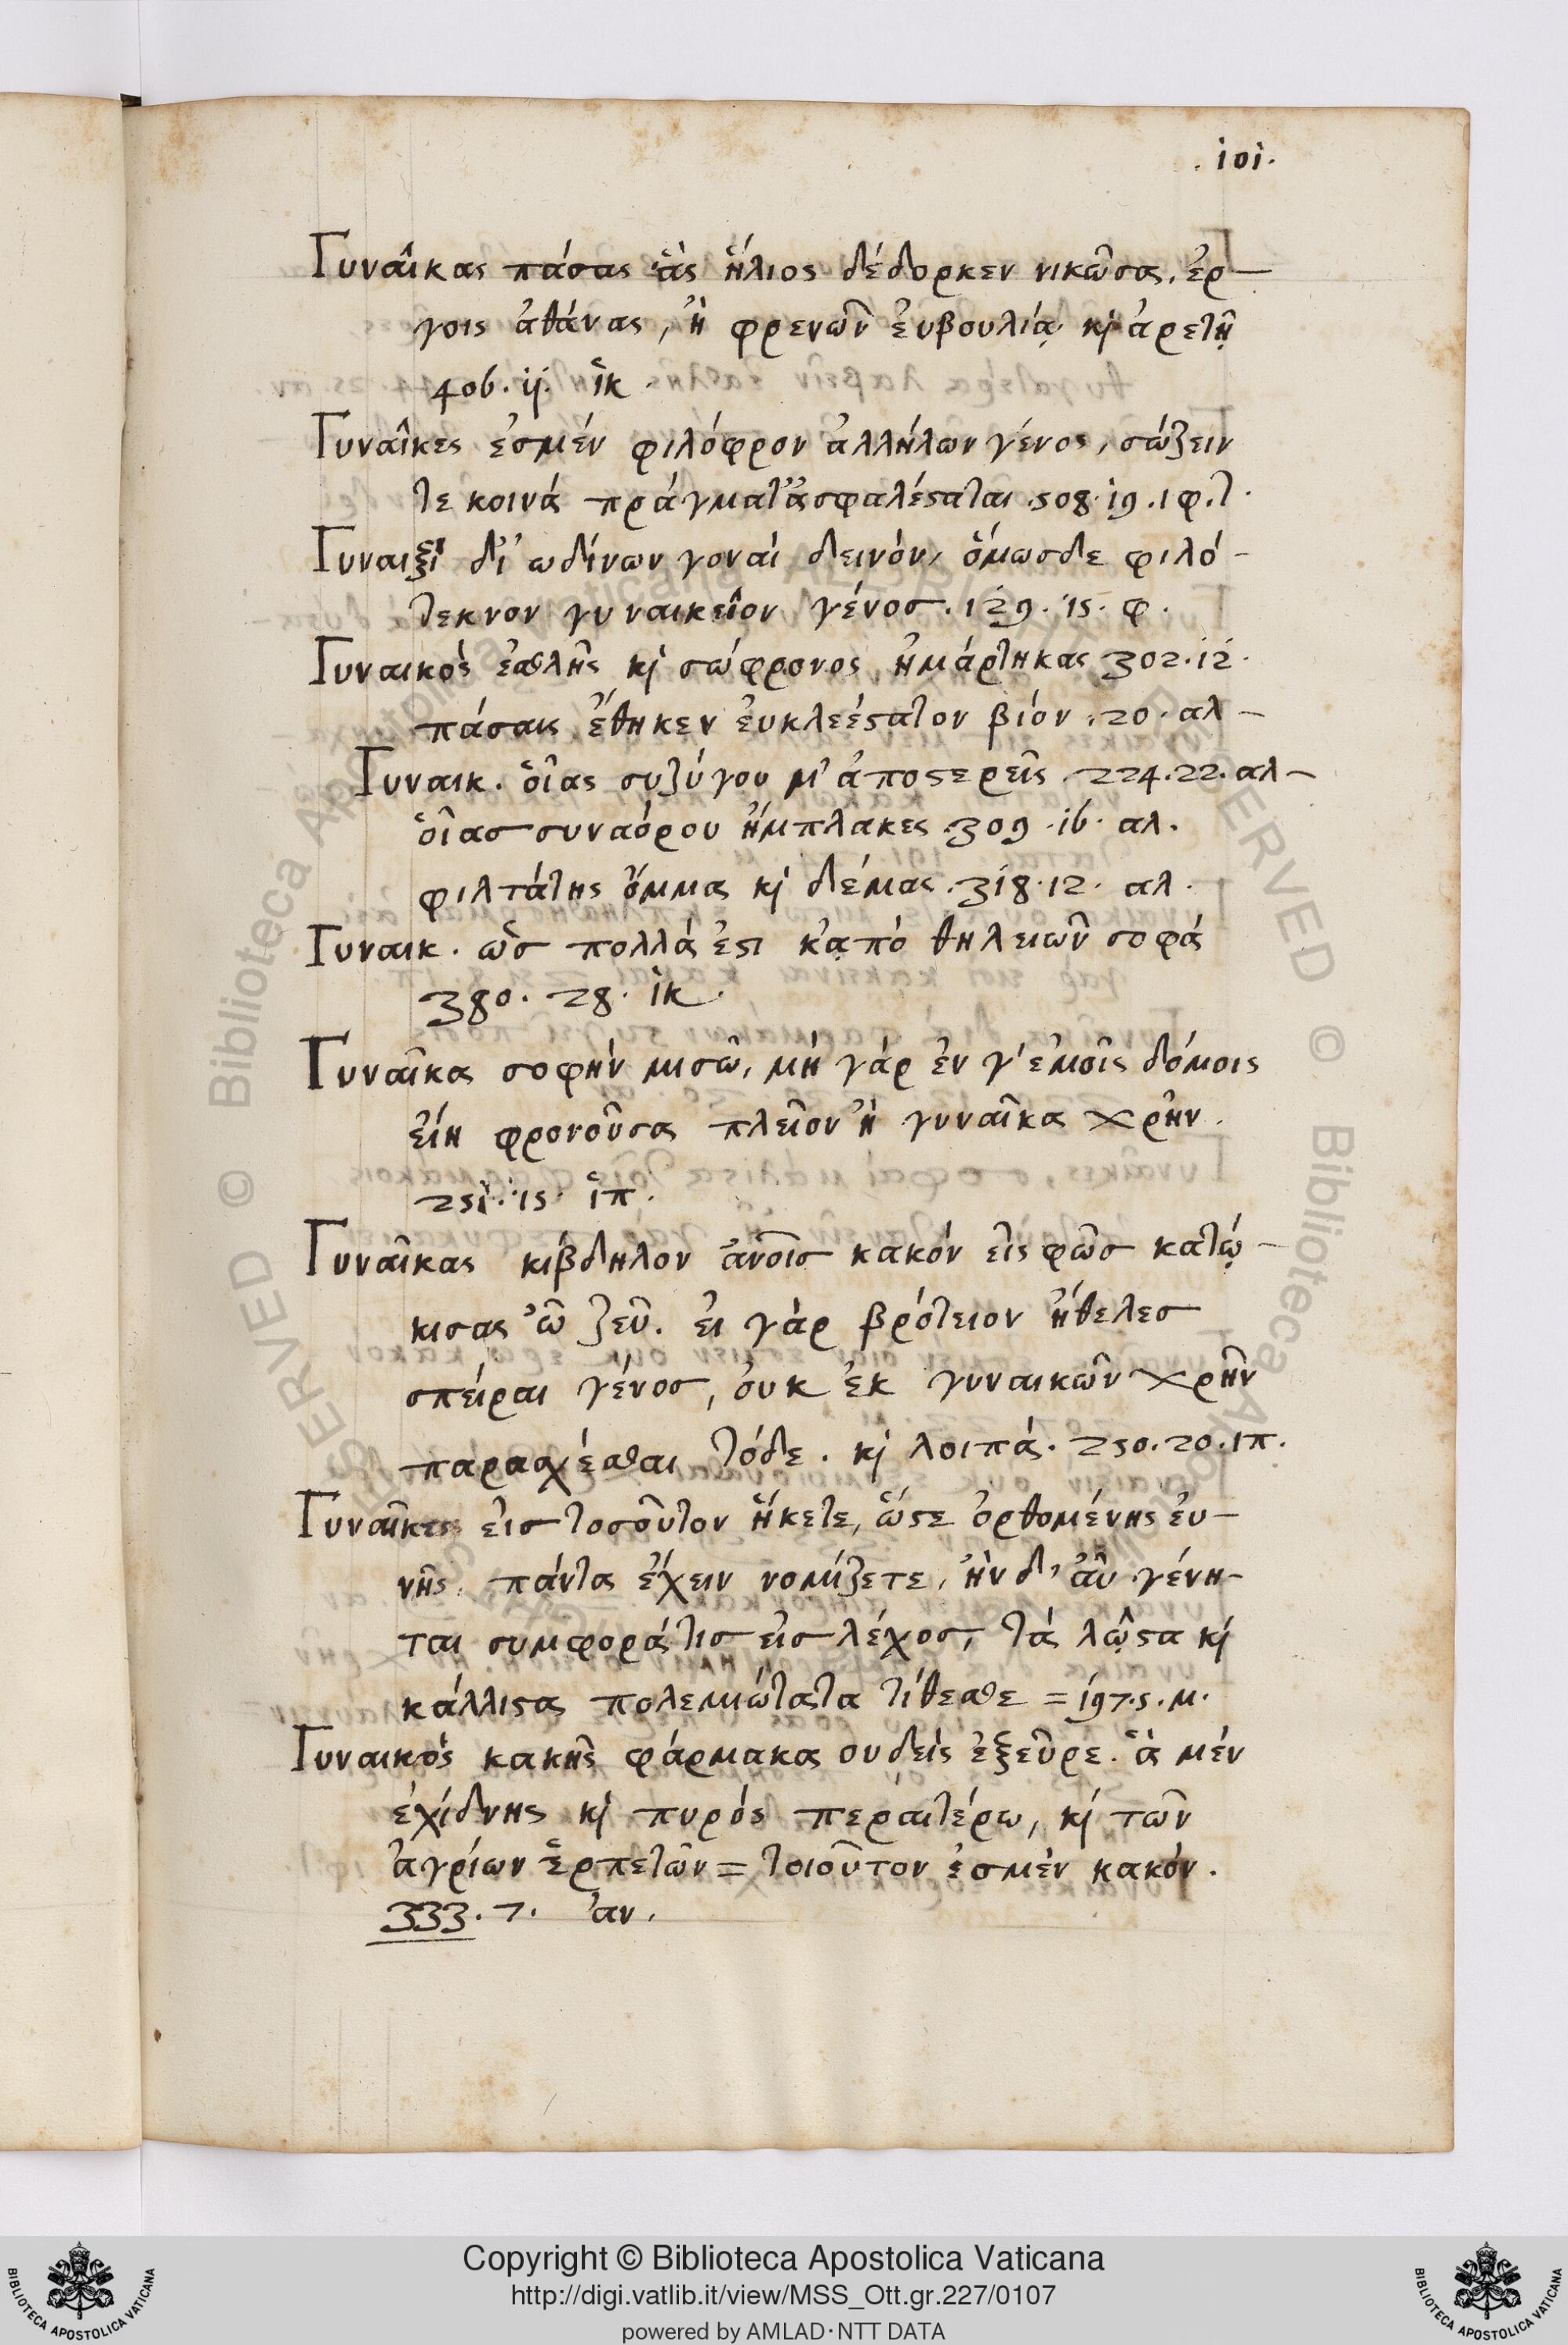 .101.
Γυναῖκας πάσας ἃς ἥλιος δέδορκεν νικῶσας, ἐρ-
γοις ἀθάνας, ἢ φρενῶν ἐυβουλίᾳ κὶ ἀρετῇ
406. ij. ἵκ.
Γυναῖκες ἐσμέν φιλόφρον ἀλλήλων γένος, σώζειν
τε κοινά πράγματ' ἀσφαλέϛαται .508. 19. ιφ. τ.
Γυναιξί δι' ωδίνων γοναί δεινόν, ὅμωσδε φιλό-
τεκνον γυναικεῖον γένοσ. 129. 15. φ.
Γυναικός ἐσθλῆς κὶ σώφρονος, ἡμάρτηκας 302. 12.
πάσαις ἔθηκεν ἐυκλεέϛατον βίον .20. αλ-
Γυναικ. ὅιας συζύγου μ' ἀποϛερεῖς .224. 22. αλ-
ὅιασ συναόρου ἤμπλακες .309. 16. αλ.
φιλτάτης ὄμμα κὶ δέμας .318. 12. αλ.
Γυναικ. ὥσ πολλά ἐϛι κᾀπό θηλειῶν σοφά
380. 28. ἱκ.
Γυναῖκα σοφὴν μισῶ, μὴ γὰρ ἐν γ' ἐμοῖς δόμοις
ἐίη φρονοῦσα πλεῖον ἢ γυναῖκα χρὴν.
251. 15. ἱπ.
Γυναῖκας κίβδηλον ἀνοῖσ κακόν εἰς φῶσ κατῴ-
κισας ὦ ζεῦ. ἐι γὰρ βρότειον ἤθελεσ
σπεῖραι γένοσ, ὀυκ ἐκ γυναικῶν χρῆν
παρασχέσθαι τόδε. κὶ λοιπά. 250. 20. ιπ.
Γυναῖκες ἐισ τοσοῦτον ἥκετε, ὥϛε ὀρθομένης ἐυ-
νῆς, πάντα ἔχειν νομίζετε, ἢν δ' ἀῦ γένη-
ται συμφορά τισ εἰσ λέχοσ, τὰ λῷϛα κὶ
κάλλιϛα πολεμιώτατα τίθεσθε = 197. 5. μ.
Γυναικός κακῆς φάρμακα ουδεὶς ἐξεῦρε. ἃ μέν
ἐχίδνης κὶ πυρός περαιτέρω, κὶ τῶν
ἀγρίων ἑρπετῶν = τοιοῦτον ἐσμὲν κακόν.
333. 7. ἀν.
Copyright © Biblioteca Apostolica Vaticana
http://digi.vatlib.it/view/MSS_Ott.gr.227/0107
powered by AMLAD·NTT DATA